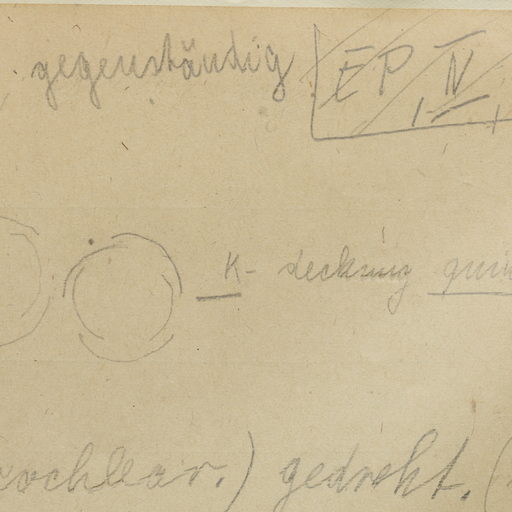 gegenständig EP IV
K- deckung
cochlear.) gedreht. (